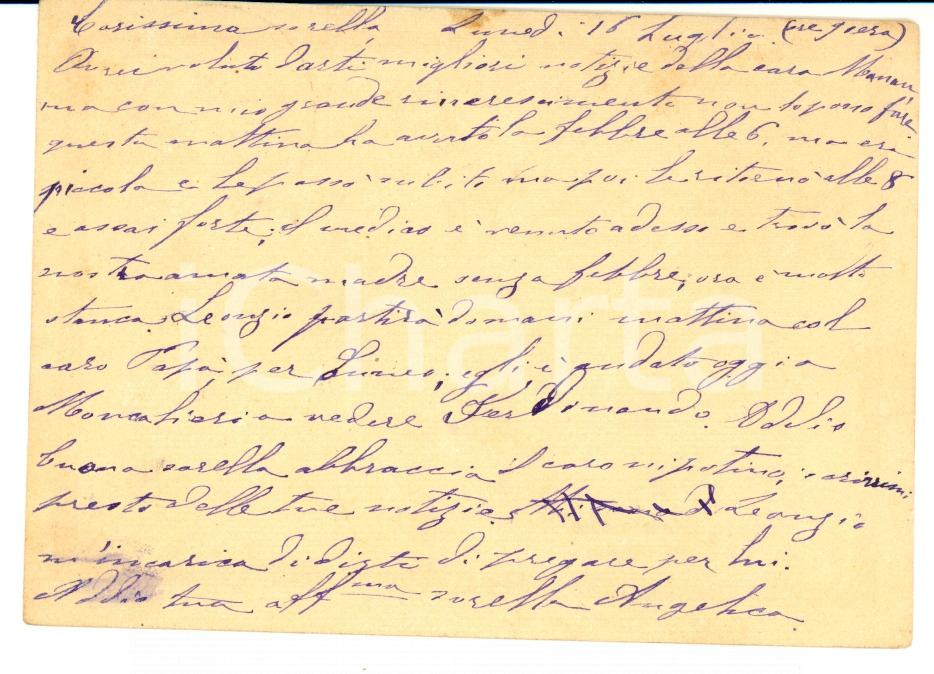 Carissima sorella, Lunedì 16 Luglio (sera)
Avrei voluto darti migliori notizie della cara Maman
ma con mio grande rincrescimento non lo posso fare
questa mattina ha avuto la febbre alle 6, ma era
piccola e le passò subito ma poi le ritornò alle 8
e assai forte; il medico è venuto adesso e trovò la
nostra amata madre senza febbre; ora è molto
stanca. Leonzio partirà domani mattina col
caro Papà, per Cuneo; egli è andato oggi a
Moncalieri a vedere Ferdinando. Addio
buona sorella abbraccia il caro nipotino; scrivimi
presto delle tue notizie. Leonzio
m'incarica di dirti di pregare per lui.
Addio tua aff.ma sorella Angelica
iCharta